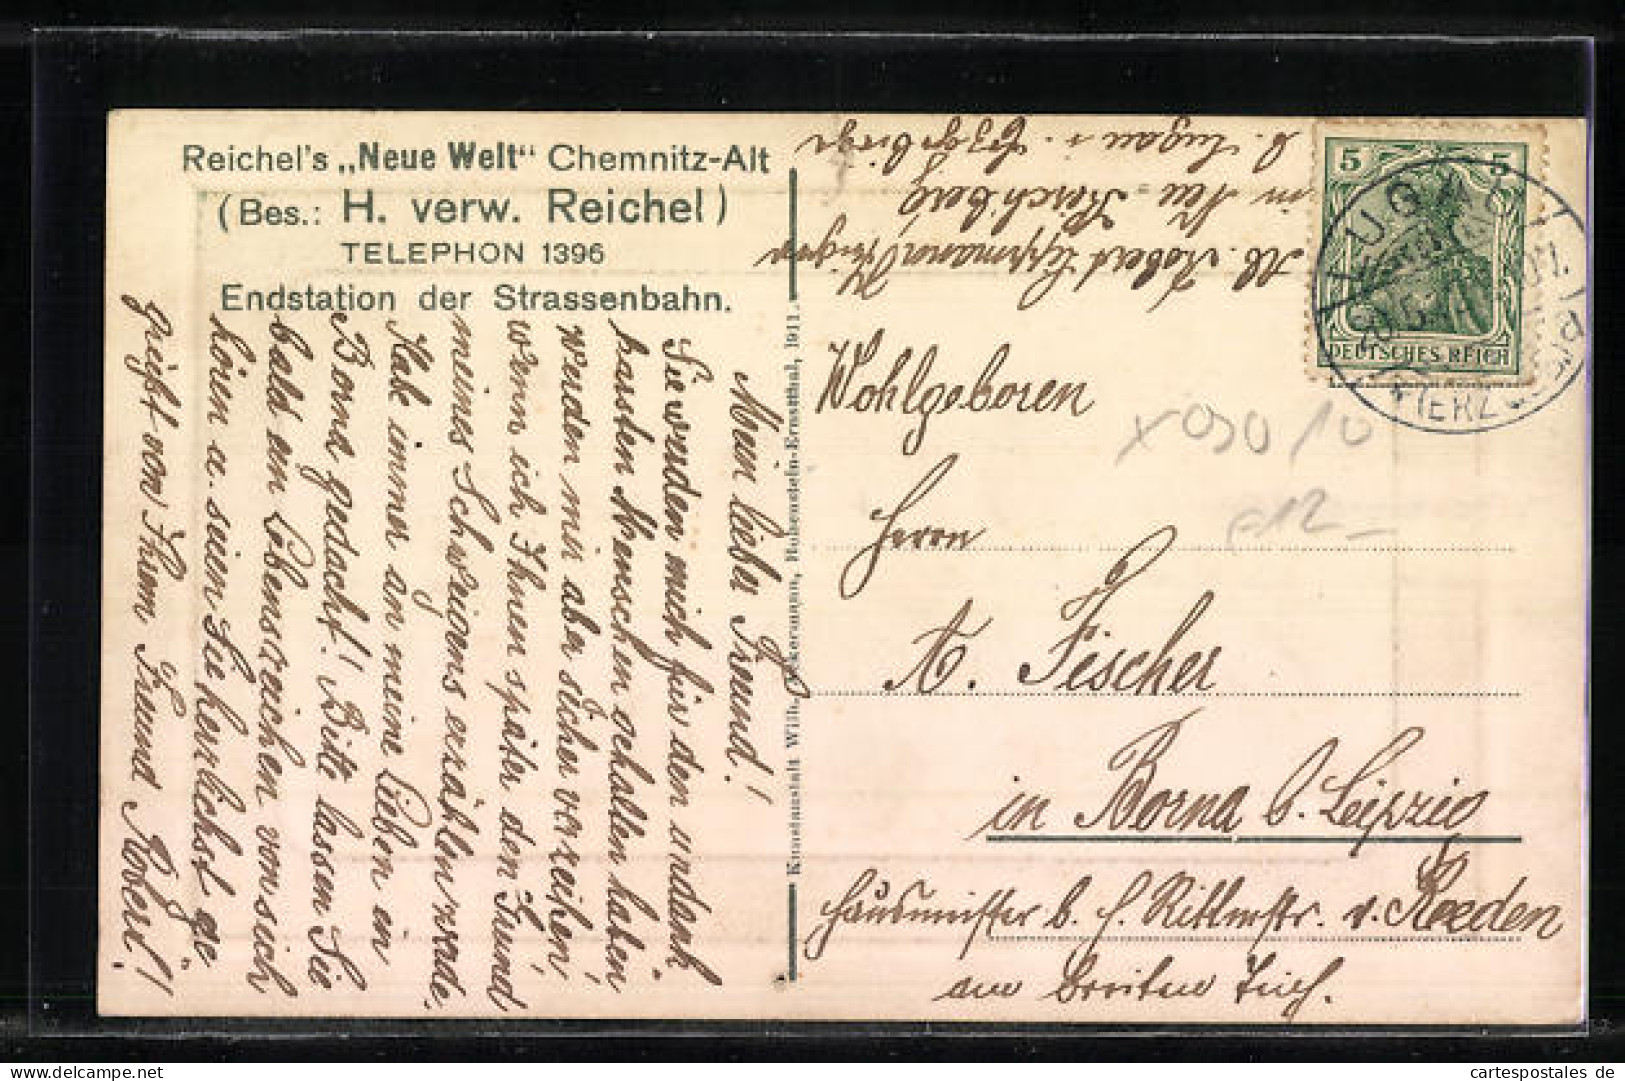 Reichel's „Neue Welt“ Chemnitz-Alt
(Bes.: H. verw. Reichel)
TELEPHON 1396
Endstation der Strassenbahn.
Mein lieber Freund!
Sie wurden mich für den undank
barsten Menschen gehalten haben
werden mir aber sicher verzeihen,
wenn ich Ihnen später den Grund
meines Schweigens erzählen werde.
Habe immer an meine Lieben in
Borna gedacht! Bitte lassen Sie
bald ein Lebenszeichen von sich
hören u. seien Sie herzlichst ge
grüßt von Ihrem Freund Robert!
Kunstanstalt Wilh. Ackermann, Hohenstein-Ernstthal, 1911.
Ab. Robert Lippmann
in Neu-Kirchberg
b. Lugau i. Erzgebirge
5 5
DEUTSCHES REICH
LUGAU
Wohlgeboren
Herrn
A. Fischer
in Borna b. Leipzig
Hausmeister b. H. Rittmstr. v. Roeden
am breiten Teich.
cartespostales de